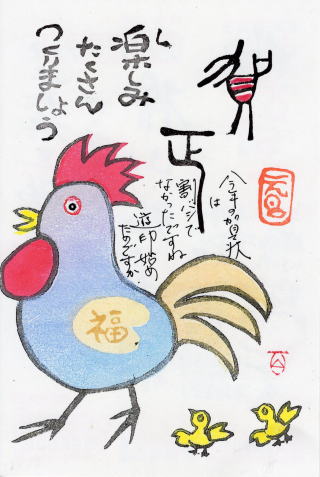 賀正
楽しみ
たくさん
つくりましょう
今年の賀状
は
割バシで
なかったですね
遊印始め
たのですか
福